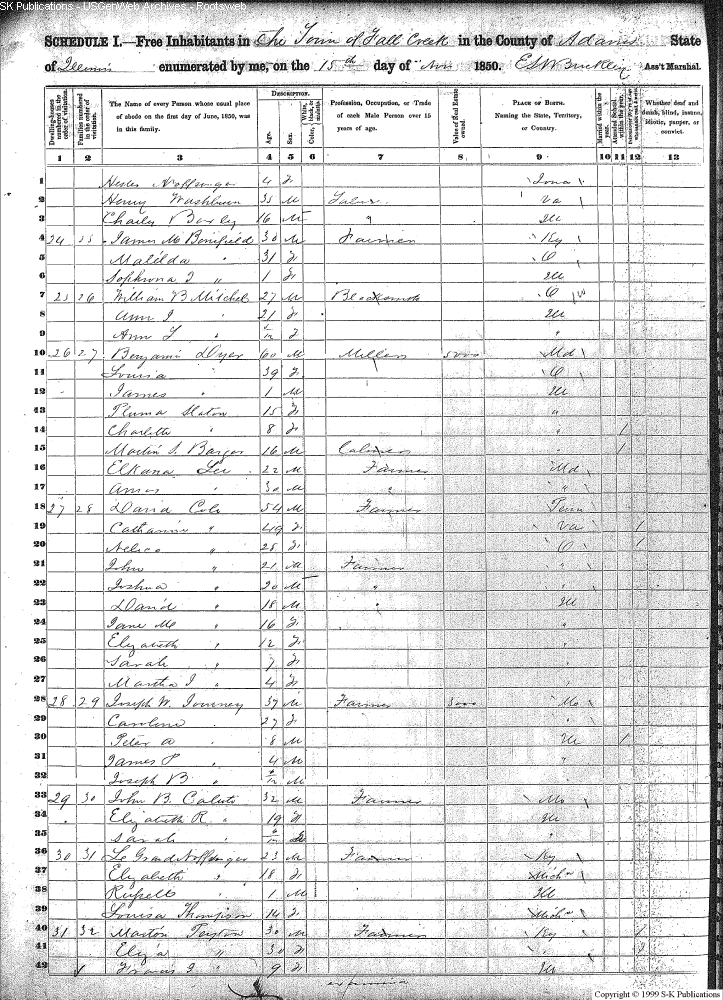 SK Publications - USGenWeb Archives - Rootsweb
SCHEDULE I.—Free Inhabitants in The Town of Fall Creek in the County of Adams State
of Illinois enumerated by me, on the 15th day of Nov 1850. Ass't Marshal.
Dwelling-houses numbered in the order of visitation.
Families numbered in the order of visitation.
The Name of every Person whose usual place of abode on the first day of June, 1850, was in this family.
DESCRIPTION.
Age.
Sex.
Color, White, black, or mulatto.
Profession, Occupation, or Trade of each Male Person over 15 years of age.
Value of Real Estate owned.
PLACE OF BIRTH. Naming the State, Territory, or Country.
Married within the year.
Attended School within the year.
Whether deaf and dumb, blind, insane, idiotic, pauper, or convict.
1 2 3 4 5 6 7 8 9 10 11 12 13
1 4 F Iowa
2 Henry Washburn 35 M Va
3 Charles 16 M " Ill
4 24 25 James M Bonifield 30 M Farmer Ky
5 Matilda " 31 F O
6 Sophrona J " 1 F Ill
7 25 26 William B Mitchel 27 M Blacksmith O
8 Ann J " 21 F Ill
9 Ann " F "
10 26 27 Benjamin Dyer 60 M Miller 5000 Md
11 Louisa " 39 F O
12 James " 1 M Ill
13 Pluma Slaton 15 F "
14 Charlotte " 8 F " 1
15 Martin S. 16 M " 1
16 Elkana Lee 22 M Farmer Md
17 Amos " 30 M " "
18 27 28 David Cole 54 M Farmer Tenn
19 Catharine " 49 F Va 1
20 " 28 F O 1
21 John " 21 M Farmer "
22 Joshua " 20 M " "
23 David " 18 M " Ill
24 Jane Mc " 16 F "
25 Elizabeth " 12 F "
26 Sarah " 7 F "
27 Martha J " 4 F "
28 28 29 Joseph W. Journey 37 M Farmer 3000 Mo
29 Caroline " 27 F "
30 Peter A " 8 M Ill 1
31 James P " 4 M "
32 Joseph B " M
33 29 30 John B. 32 M Farmer Mo
34 Elizabeth R " 19 F Ill
35 Sarah " "
36 30 31 Le Grand Noffsinger 23 M Farmer Ky
37 Elizabeth " 18 F Mich
38 Russell " 1 M Ill
39 Louisa Thompson 14 F Mich
40 31 32 Peyton 30 M Farmer Ky 1
41 Eliza " 30 F " 1
42 Francis J " 9 F Ill
Copyright © 1999 S-K Publications